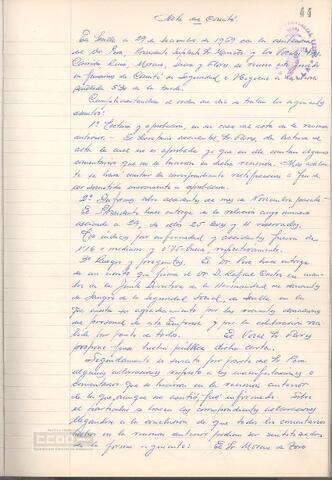 44
Acta de Comité.
En Sevilla a 29 de diciembre de 1969 con la asistencia
del Sr. Poza, Presidente, Sr. y los Vocales Sres.
Carrión, Ruiz, Moreno, y Flores se reune este
en funciones de Comité de Seguridad e Higiene a las
5'30 de la tarde.
Conforme orden del dia se tratan los siguientes
asuntos:
1º Lectura y aprobación, en su caso del acta de la reunión
anterior. - El Secretario accidental, Sr. Flores, da lectura al
acta la cual no es aprobada ya que en ella constan algunos
comentarios que no se hicieron en dicha reunión. Mas adelan
te se hará constar la correspondiente rectificación a fin de
ser sometida nuevamente a aprobación.
2º Informe sobre accidentes del mes de Noviembre pasado.-
El Presidente hace entrega de la relación cuyo número
asciende a 29, de ellos 25 leves y 4 reservados.
Los indices por enfermedad y accidentes fueron de
1'16 e y 2'75 respectivamente.
3º Ruegos y preguntas. El Sr. Poza hace entrega
de un escrito que firma el Sr. D. Rafael en
nombre de la Junta Directiva de la Hermandad de donantes
de Sangre de la Seguridad Social, de Sevilla en la
que visto su agradecimiento por las recientes donaciones
del personal de esta Empresa, y por la colaboración reci
bida por parte de todos. El Vocal Sr. Flores
propone sea hecha pública dicha carta.
Seguidamente se suscita por parte del Sr. Poza
algunas aclaraciones respecto a las manifestaciones o
comentarios que se hicieron en la reunión anterior
de la que, aunque no asistió, fué informado. Sobre
el particular se hacen las correspondientes aclaraciones
llegandose a la conclusión de que todos los comentarios
hechos en la reunión anterior podian ser sintetizados
de la forma siguiente: El Sr. Moreno de
CCOO